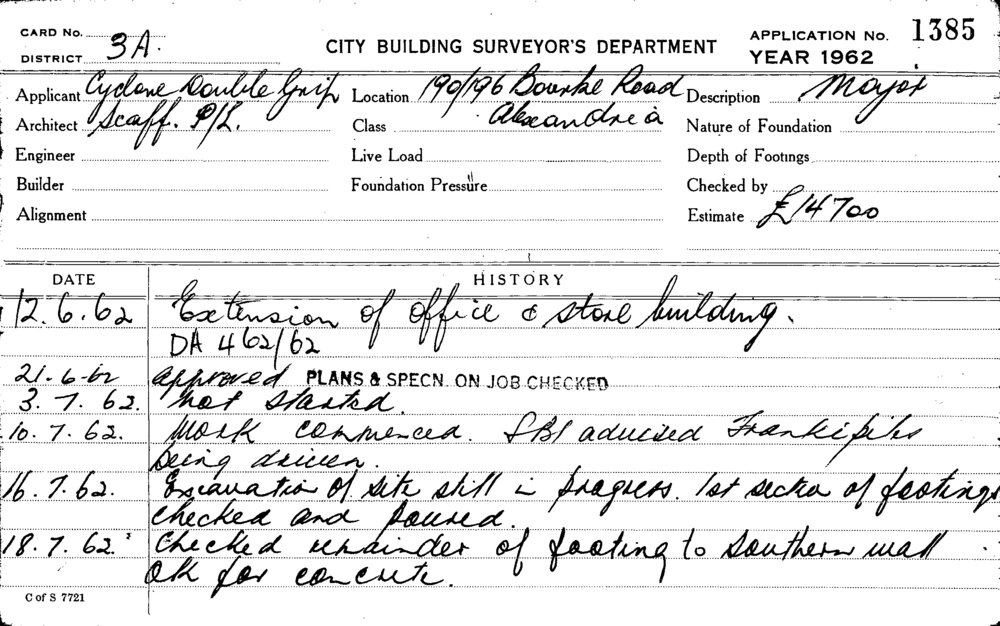 CARD No.
DISTRICT 3A.
CITY BUILDING SURVEYOR'S DEPARTMENT
APPLICATION No. 1385
YEAR 1962
Applicant Cyclone Double Grip Location 190/196 Bourke Road Description Major
Architect Scaff. P/L. Class Alexandria Nature of Foundation
Engineer Live Load Depth of Footings
Builder Foundation Pressure Checked by
Alignment Estimate £14700
DATE HISTORY
12.6.62 Extension of office & store building.
DA 462/62
21.6.62 approved PLANS & SPECN. ON JOB CHECKED
3.7.62. Not started.
10.7.62. Work commenced. SBI advised Frankipiles
being driven.
16.7.62. Excavation of site still in progress. 1st section of footings
checked and poured.
18.7.62. Checked remainder of footing to Southern wall
OK for concrete.
C of S 7721